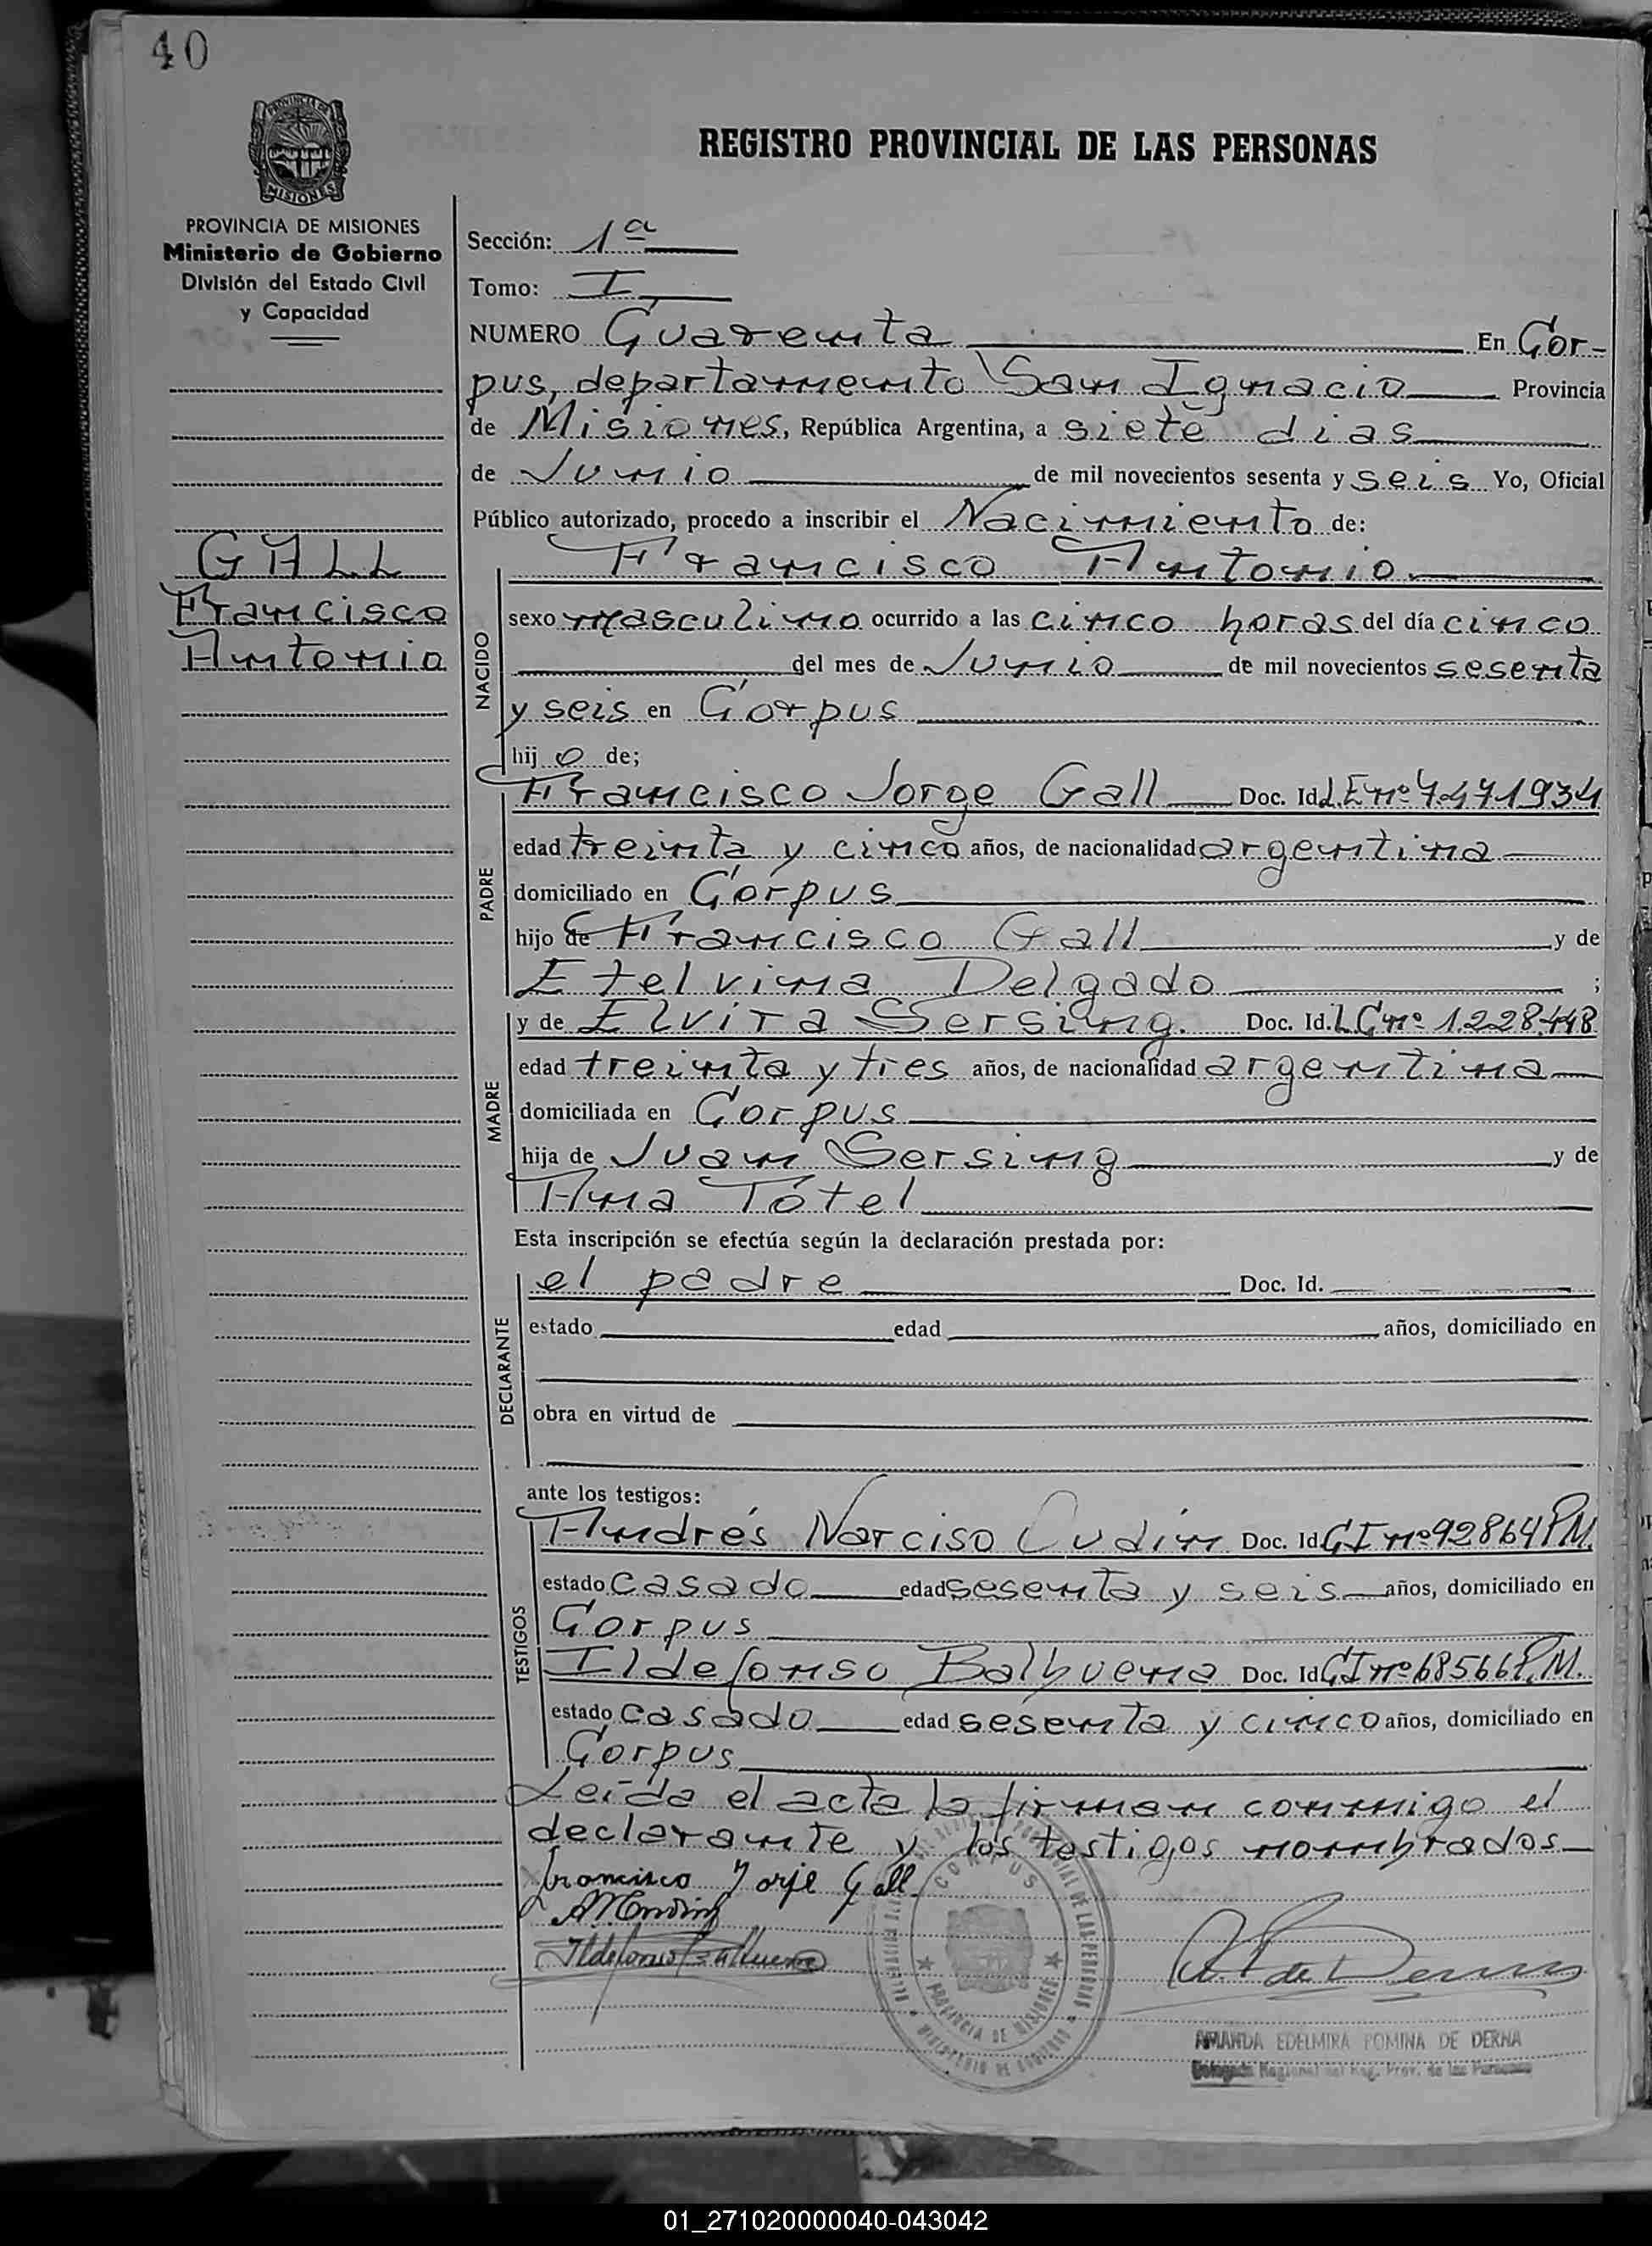 40
PROVINCIA DE
MISIONES
REGISTRO PROVINCIAL DE LAS PERSONAS
PROVINCIA DE MISIONES
Ministerio de Gobierno
División del Estado Civil
y Capacidad
GALL
Francisco
Antonio
Sección: 1ª
Tomo: I
NUMERO Cuarenta En Cor-
pus, departamento San Ignacio Provincia
de Misiones, República Argentina, a siete días
de Junio de mil novecientos sesenta y seis Yo, Oficial
Público autorizado, procedo a inscribir el Nacimiento de:
NACIDO
Francisco Antonio
sexo masculino ocurrido a las cinco horas del día cinco
del mes de Junio de mil novecientos sesenta
y seis en Corpus
hijo de;
PADRE
Francisco Jorge Gall Doc. Id. L.E nº 7.471934
edad treinta y cinco años, de nacionalidad argentina
domiciliado en Corpus
hijo de Francisco Gall y de
Etelvina Delgado ;
MADRE
y de Elvira Sersing. Doc. Id. L.C nº 1.228.448
edad treinta y tres años, de nacionalidad argentina
domiciliada en Corpus
hija de Juan Sersing y de
Ana Tótel
Esta inscripción se efectúa según la declaración prestada por:
DECLARANTE
el padre Doc. Id.
estado edad años, domiciliado en
obra en virtud de
ante los testigos:
TESTIGOS
Andrés Narciso Doc. Id. CI nº 92864 P.M.
estado casado edad sesenta y seis años, domiciliado en
Corpus
Ildefonso Balbuena Doc. Id. CI nº 68566 P.M.
estado casado edad sesenta y cinco años, domiciliado en
Corpus
Leída el acta la firman conmigo el
declarante y los testigos nombrados
francisco Jorje Gall
Ildefonso Balbuena
CORPUS
PROVINCIA DE MISIONES
AMANDA EDELMIRA POMINA DE DERNA
Delegada Regional del Reg. Prov. de las Personas
01_271020000040-043042